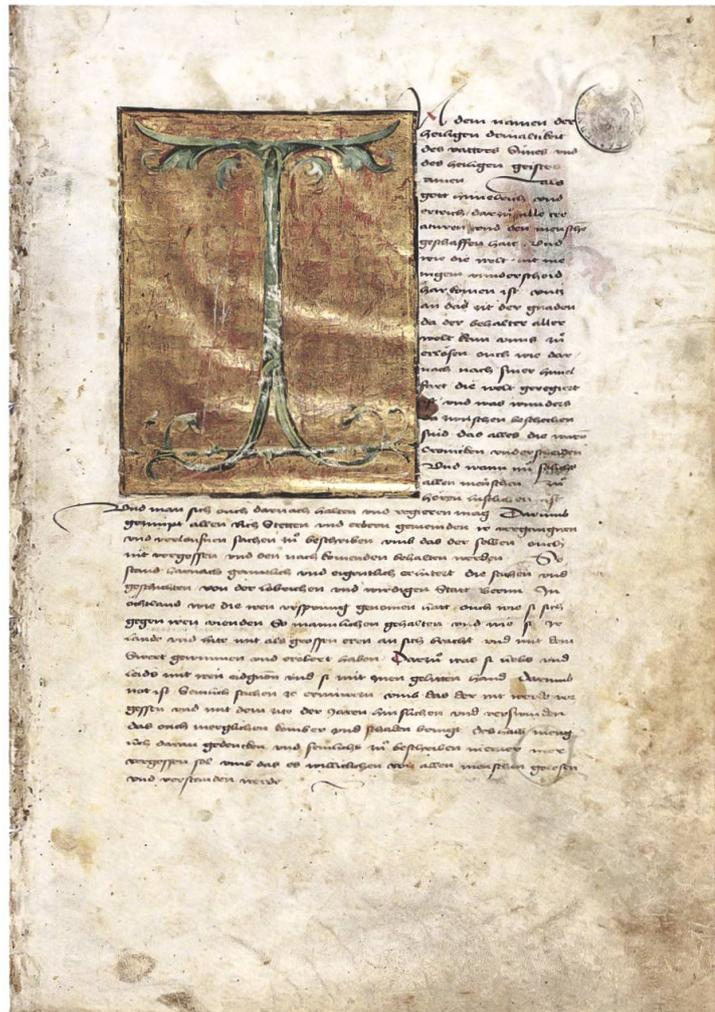 N dem namen der
heiligen drivaltikeit
des vatters Sunes und
des heiligen geistes
amen Als
gott himelrich und
ertrich darzu alle cre
aturen und den mensche
geschaffen hatt Und
wie die welt mit me
nigem underscheid
harkomen ist untz
an das zit der gnaden
da der behalter aller
welt kam unns zu
erlösen ouch wie dar
nach nach siner himel
fart die welt geregiert
ist und was wunders
da zwuschen beschechen
sind das alles die waren
Cronicken underscheiden
Und wann nu söliche
allen menschen zu
hören lustlichen ist
Und man sich ouch darnach halten und regieren mag Darumb
gezimpt allen Rich Stetten und erbern gemeinden ir vergangnen
und verloufnen sachen zu beschriben umb das der selben ouch
nit vergessen und den nach komenden behalten werden So
stand harnach geminlich und eigentlich erlütert die sachen und
geschichten von der loblichen und wirdigen Statt Bernn In
öchtland wie die iren ursprung genomen hatt ouch wie si sich
gegen iren vienden So mannlichen gehalten und wie si ir
lande und lüte mit als grossen eren an sich bracht und mit dem
Swert gewunnen und erobert haben Darzu was si liebs und
leids mit iren eidgnossen und si mit inen gelitten hand Darumb
not ist Semlich sachen ze ernüwern umb das der nit werde ver
gessen und mit dem zite der Jaren hinslichen und verswinden
das ouch mergklichen komber und schaden bringt des halb meng
lich daran gedencken und semlichs zu beschriben niemer mer
vergessen sol umb das es williclichen von allen menschen gelesen
und verstanden werde